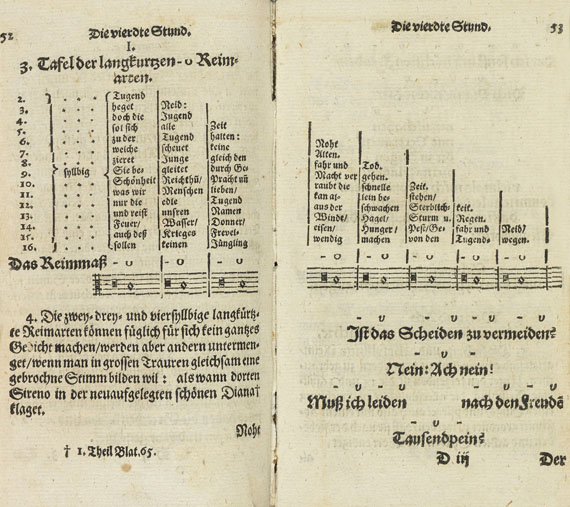 52 Die vierdte Stund.
I.
3. Tafel der langkurtzen - ᴗ Reim-
arten.
2. Tugend
3. heget Neid:
4. doch die Jugend
5. sol sich alle Zeit
6. zu der Tugend halten:
7. weiche scheuet keine
8. zieret Junge gleich den
9. syllbig Sie be- gleitet durch Ge-
10. Schönheit Reichthü/ Pracht uñ
11. was wir Menschen lieben/
12. nur die edle Tugend
13. und reist unsren Namen
14. Feuer/ Wasser/ Donner/
15. auch deß Krieges Frevel-
16. sollen keinen Jüngling
Das Reimmaß - ᴗ - ᴗ - ᴗ
4. Die zwey- drey- und viersyllbige langkürtz-
te Reimarten können füglich für sich kein gantzes
Gedicht machen/werden aber andern untermen-
get/wenn man in grossen Trauren gleichsam eine
gebrochne Stimm bilden wil: als wann dorten
Sireno in der neuaufgelegten schönen Diana†
klaget.
Noht
† 1. Theil Blat. 65.
Die vierdte Stund. 53
Noht
Alten.
fahr und Tod.
Macht ver- gehen.
raubt die schnelle Zeit.
kan al- lein be- stehen/
aus der schwachen Sterblich- keit.
Windt/ Hagel/ Sturm u. Regen.
eisen/ Hunger/ Pest/Ge- fahr und Neid/
wendig machen von den Tugend- wegen.
- ᴗ - ᴗ - ᴗ - ᴗ - ᴗ
- ᴗ - ᴗ - ᴗ - ᴗ
Ist das Scheiden zu vermeiden?
- ᴗ -
Nein: Ach nein!
- ᴗ - ᴗ - ᴗ - ᴗ
Muß ich leiden nach den Freudē
- ᴗ -
Tausendpein?
D iij Der